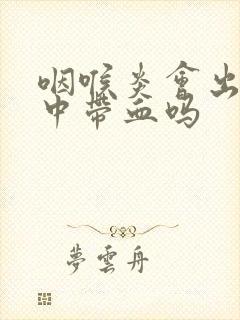 咽喉炎會出
中帶血嗎
夢雲舟